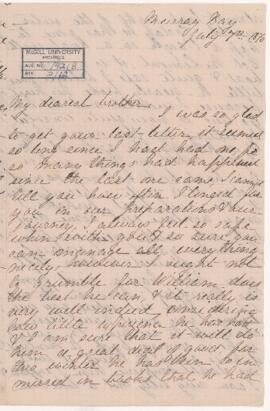 Murray Bay
July 7th
McGILL UNIVERSITY
ARCHIVES
ACC. NO.
REF.
My dearest brother
I was so glad
to get your last letter, it seemed
so long since I had had one, &
so many things had happened
since the last one came, I cannot
tell you how often I longed for
you in our preparations & our
journey, I always feel so safe
when with you & so sure you
can manage everything
nicely, however I ought not
to grumble for William does
the best he can, & it really is
very well indeed, considering
how little experience he has had
& I am sure that it will do
him a great deal of good for
this winter he has been so im
mersed in books that he had